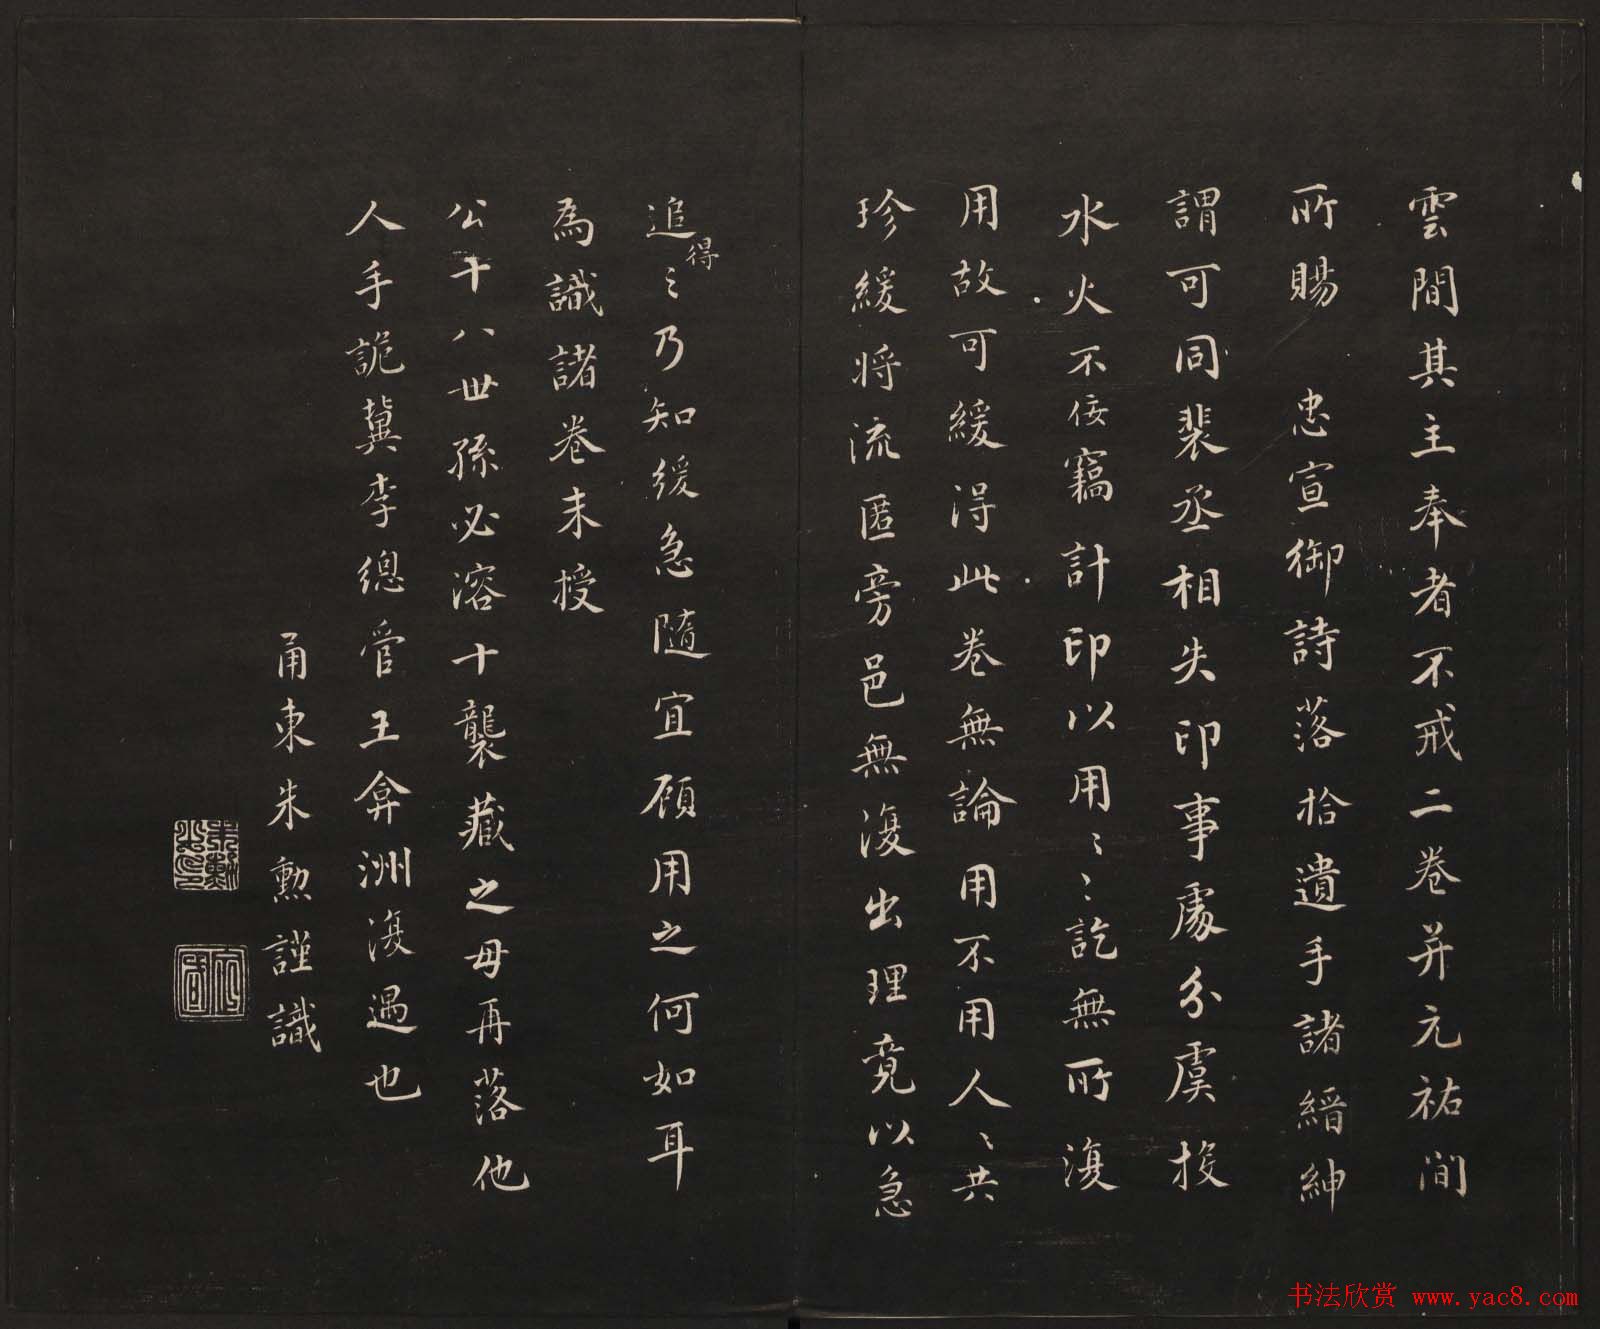 雲間其主奉者不戒二卷并元祐間
所賜 忠宣御詩落拾遺手諸縉紳
謂可同裴丞相失印事處分虞投
水火不佞竊計印以用〻〻訖無所復
用故可緩得此卷無論用不用人〻共
珍緩將流匿旁邑無復出理竟以急
追得〻乃知緩急隨宜顧用之何如耳
為識諸卷末授
公十八世孫必溶十襲藏之毋再落他
人手詭冀李總管王弇洲復遇也
甬東朱勲謹識
书法欣赏 www.yac8.com